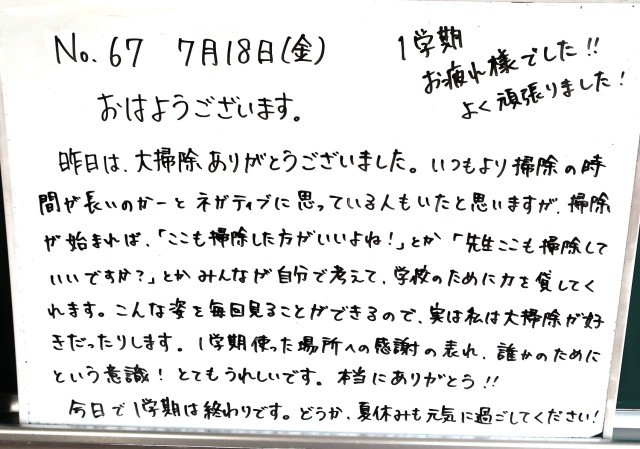 No.67 7月18日(金)
1学期
お疲れ様でした!!
よく頑張りました!
おはようございます。
昨日は、大掃除ありがとうございました。いつもより掃除の時
間が長いのかーとネガティブに思っている人もいたと思いますが、掃除
が始まれば、「ここも掃除した方がいいよね!」とか「先生ここも掃除して
いいですか?」とかみんなが自分で考えて、学校のために力を貸してく
れます。こんな姿を毎回見ることができるので、実は私は大掃除が好
きだったりします。1学期使った場所への感謝の表れ、誰かのために
という意識!とてもうれしいです。本当にありがとう!!
今日で1学期は終わりです。どうか、夏休みも元気に過ごしてください!